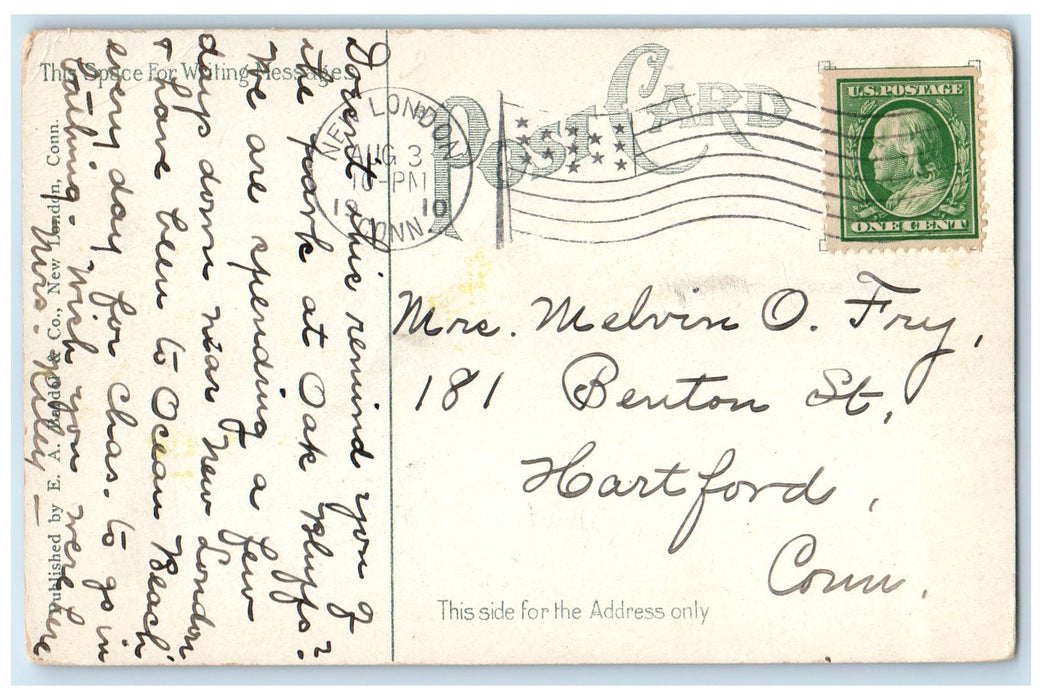 This Space For Writing Messages
POST CARD
U.S. POSTAGE
ONE CENT
NEW LONDON
AUG 3
-PM
10
CONN.
Doesn't this remind you of
the park at Oak Bluffs?
We are spending a few
days down near New London
& have been to Ocean Beach
every day for Chas. to go in
bathing. Wish you were here
Mrs. Riley —
Published by E. A. & Co., New London, Conn.
Mrs. Melvin O. Fry,
181 Benton St,
Hartford,
Conn.
This side for the Address only